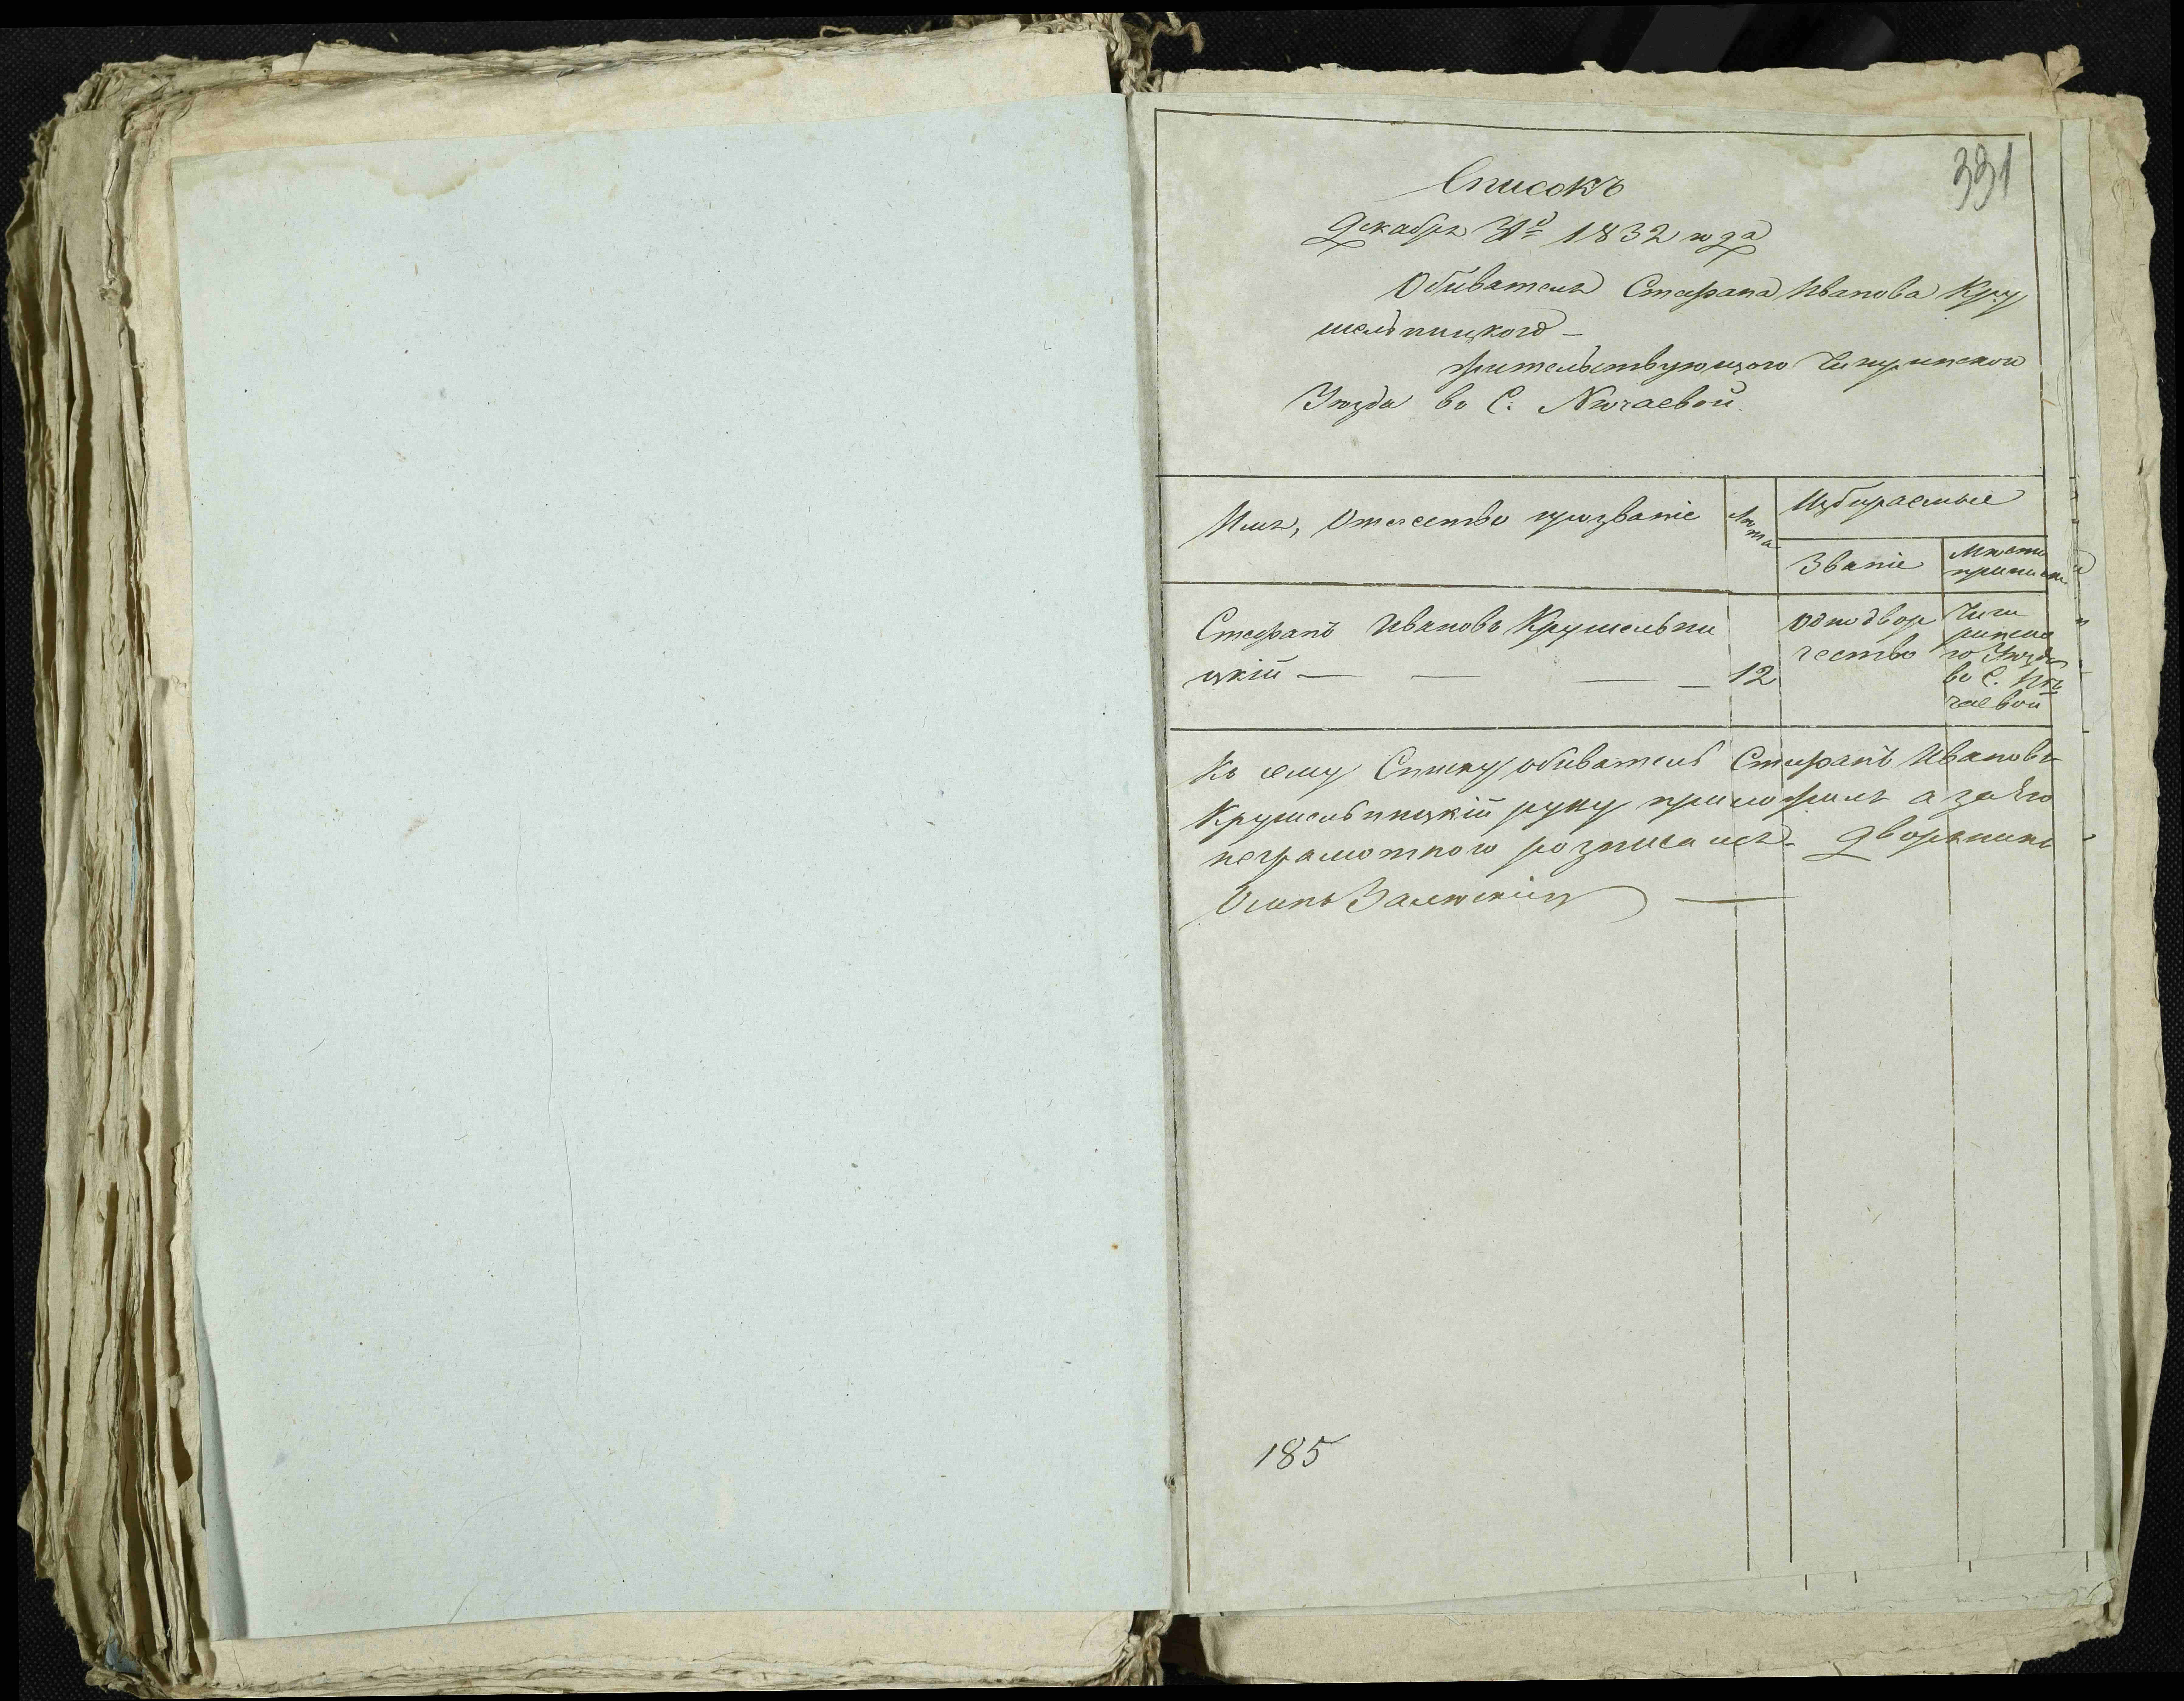 331
Списокъ
Декабря 31º 1832 года
Обивателя Стефана Иванова Кру
шельницкого –
жительствующого Чигиринского
Уѣзда въ С: Нѣчаевой.
Имя, Отечество прозваніе
Лѣ
та
Избираемые
Званіе
Место
приписки
Стефанъ Ивановъ Крушельни
цкій — — — — 12
однодвор
чество
Чиги
ринска
го Уезда
въ С. Нѣ
чаевой
Къ сему Списку обиватель Стефанъ Ивановъ
Крушельницкій руку приложилъ а за Его
неграмотного розписался. Дворянинъ
Осипъ
185